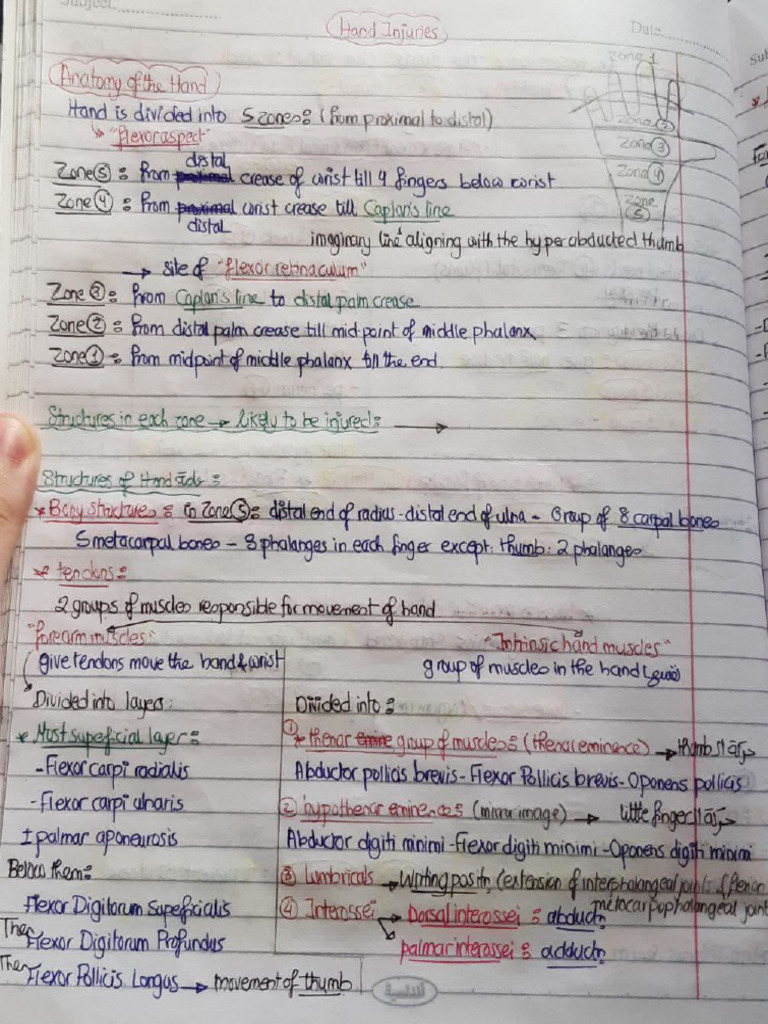 Subject:
Hand Injuries
Date
Zone 1
Anatomy of the Hand
Hand is divided into 5 zones: (from proximal to distal)
Zone ②
"flexor aspect"
Zone ③
distal
Zone ⑤: from proximal crease of wrist till 4 fingers below wrist
Zone ④
Zone ④: from proximal wrist crease till Caplan's line
Zone ⑤
distal
imaginary line aligning with the hyper abducted thumb
→ site of "flexor retinaculum"
Zone ③: from Caplan's line to distal palm crease
Zone ②: from distal palm crease till midpoint of middle phalanx
Zone ①: from midpoint of middle phalanx till the end.
Structures in each zone → likely to be injured: →
Structures of Hand :
* Bony structures: in Zone ⑤: distal end of radius - distal end of ulna - Group of 8 carpal bones
5 metacarpal bones - 3 phalanges in each finger except: thumb: 2 phalanges
* tendons:
2 groups of muscles responsible for movement of hand
"forearm muscles"
"Intrinsic hand muscles"
give tendons move the hand & wrist
group of muscles in the hand
Divided into layers:
Divided into:
* Most supeficial layer:
① * thenar group of muscles: (thenar eminence) → thumb
- Flexor carpi radialis
Abductor pollicis brevis - Flexor Pollicis brevis - Oponens pollicis
- Flexor carpi ulnaris
② hypothenar eminences (mirror image) → little finger
± palmar aponeurosis
Abductor digiti minimi - Flexor digiti minimi - Oponens digiti minimi
Below them:
③ Lumbricals → Writing positn (extension of interphalangeal joints & flexion metacarpophalangeal joint
Flexor Digitorum Supeficialis
④ Interossei → Dorsal interossei: abductn
Then Flexor Digitorum Profundus
palmar interossei: adductn
Then Flexor Pollicis Longus → movement of thumb